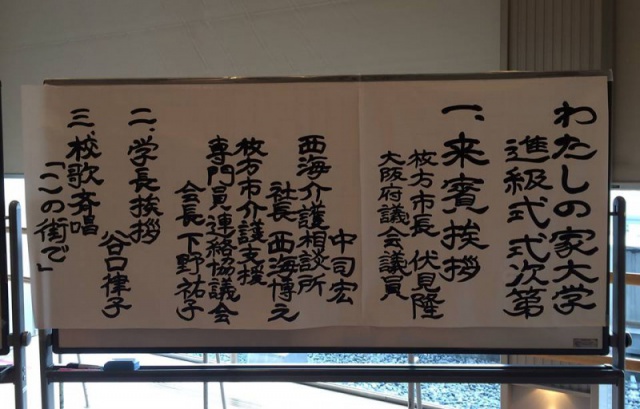 わたしの家大学
進級式式次第
一、来賓挨拶
枚方市長 伏見隆
大阪府議会議員
中司宏
西海介護相談所
社長 西海博之
枚方市介護支援
専門員連絡協議会
会長 下野祐子
二、学長挨拶
谷口律子
三、校歌斉唱
「この街で」